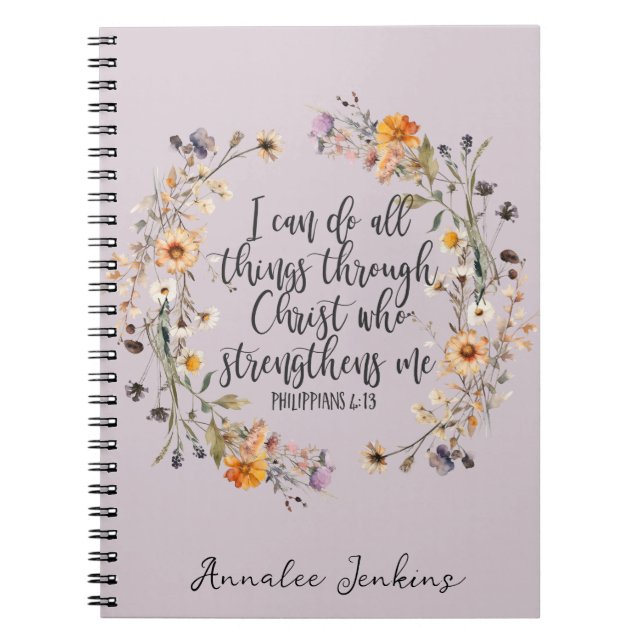 I can do all
things through
Christ who
strengthens me
PHILIPPIANS 4:13
Annalee Jenkins